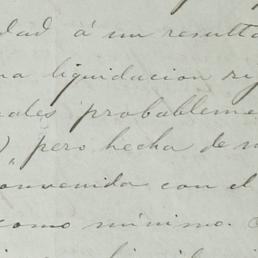 dad á un resulta
na liquidacion
ales probableme
) pero hecha de
onvenida con el
como mínimo.